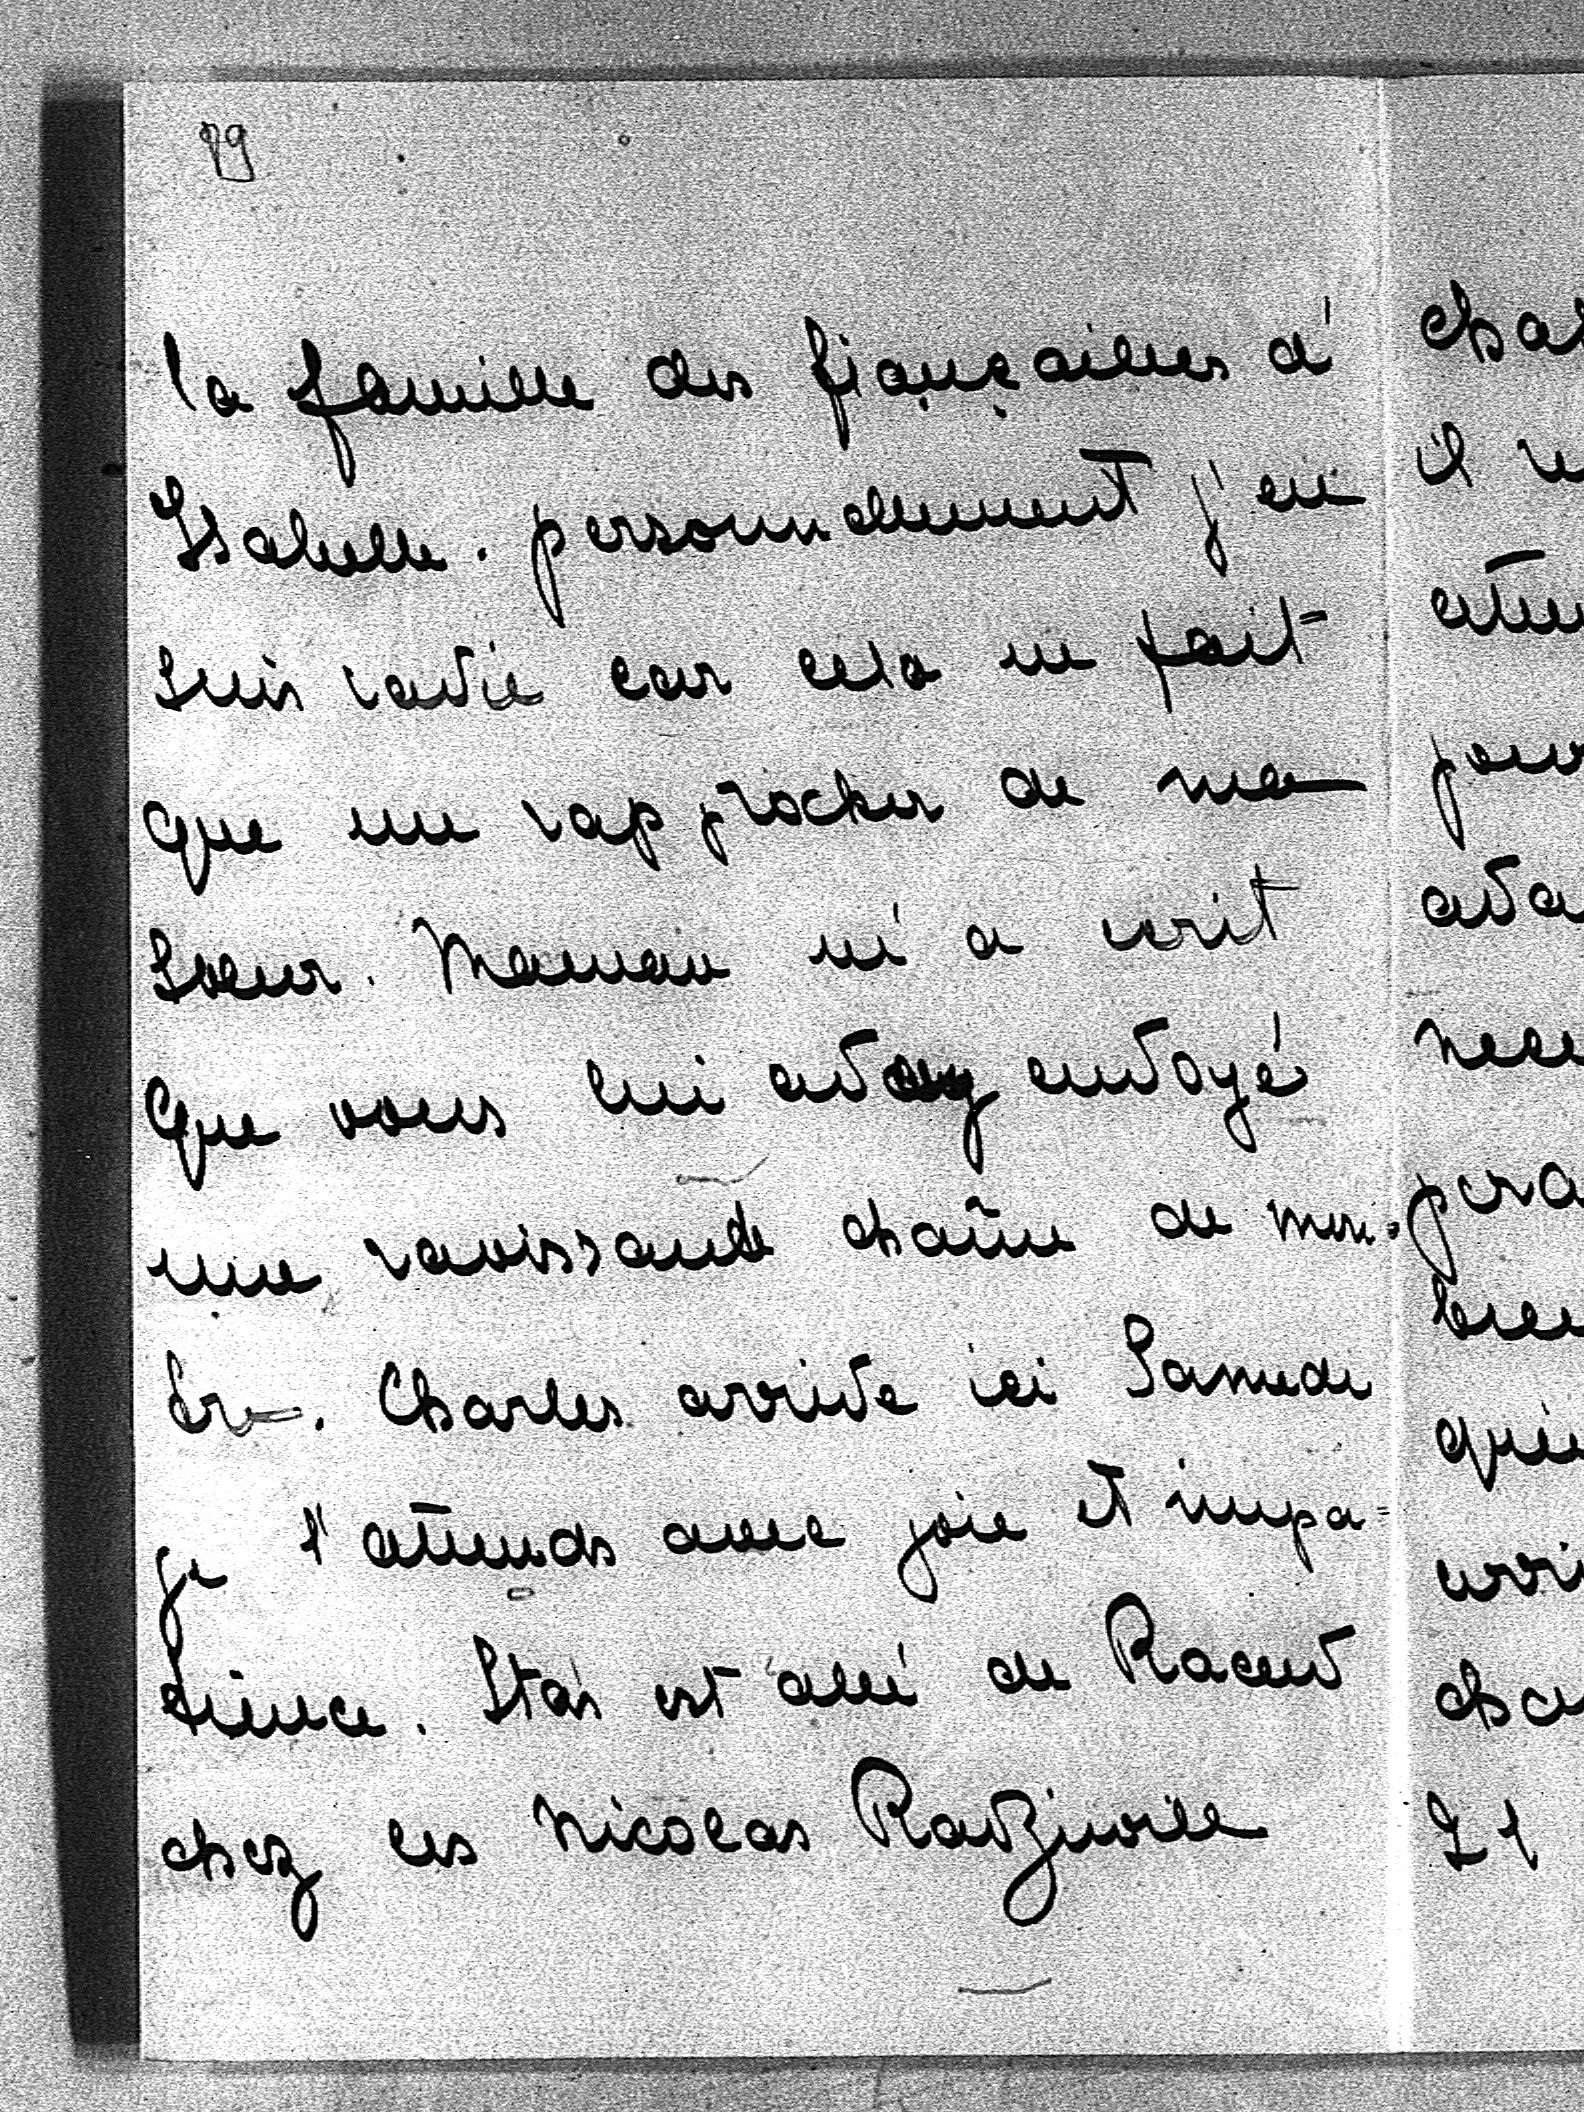 79
la famille des fiançailles d'
Isabelle. personnellement j'en
suis ravie car cela ne fait
que me rapprocher de ma
soeur. Maman m'a écrit
que vous lui avez envoyé
une ravissante chaîne de mon-
tre. Charles arrive ici Samedi
je l'attends avec joie et impa-
tience. Staś est allé de Racewo
chez les Nicolas Radziwill
chas
il
pour
ava
bien
arri